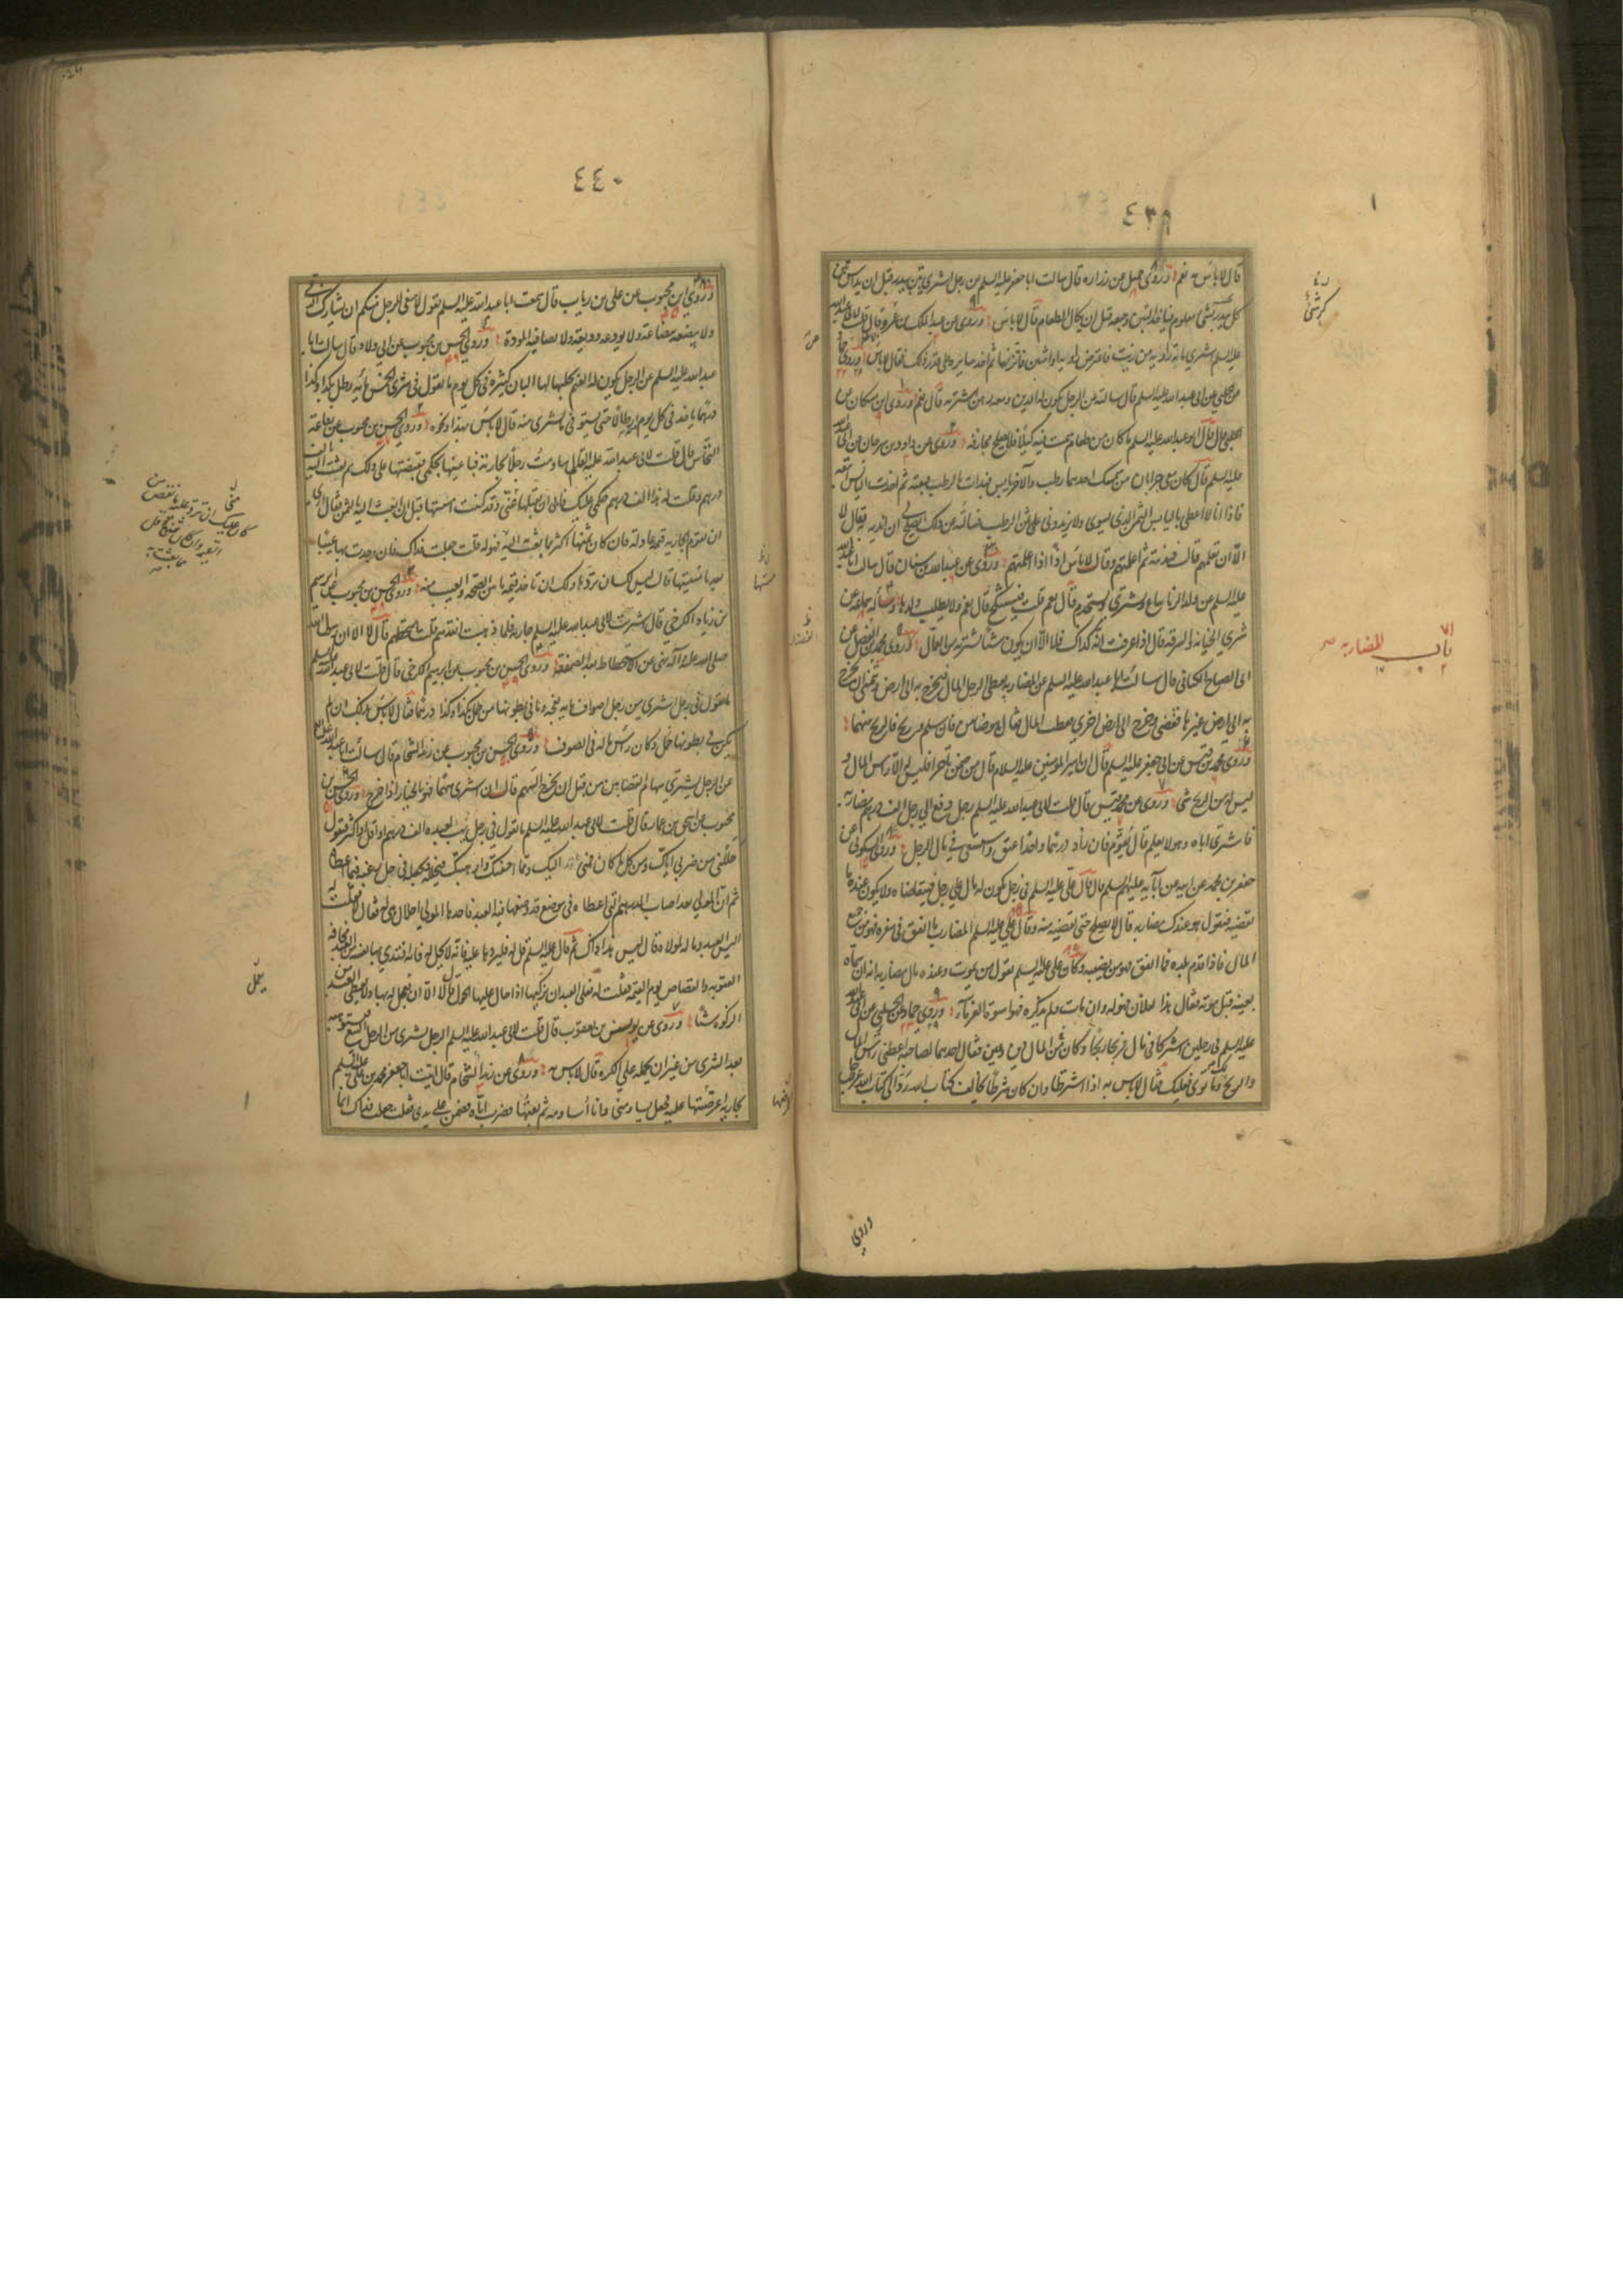 ٤٣٩
قال لا باس به نعم وروى جميل عن زراره قال سالت ابا جعفر عليه السلم عن رجل اشترى تبن بيدر قبل ان يداس تبن
كل بيدر بشئ معلوم فياخذ التبن ويبيعه قبل ان يكال الطعام قال لا باس وروى عن عبد الملك بن عمرو قال قلت لابي عبد الله
عليه السلم اشترى مائة راوية من زيت فاعترض راوية او اثنتين فاتزنهما ثم اخذ سايره على قدر ذلك فقال لا باس وروى حماد
عن الحلبي عن ابى عبد الله عليه السلم قال سالته عن الرجل يكون له الدين ومعه رهن ايشتريه قال نعم وروى ابن مسكان عن
الحلبي قال قال ابو عبد الله عليه السلم ما كان من طعام سميت فيه كيلا فلا يصلح مجازفة وروى عن داود بن سرحان عن ابى عبد الله
عليه السلم قال كان معى جرابان من مسك احدهما رطب والآخر يابس فبدات بالرطب فبعته ثم اخذت اليابس ابيعه
فاذا انا لا اعطى باليابس الثمن الذى يسوى ولا يزيدونى على ثمن الرطب فسالته عن ذلك ايصلح لى ان انديه فقال لا
الا ان تعلمهم قال فنديته ثم اعلمتهم وقال لا باس اذا اعلمتهم وروى عن عبد الله بن سنان قال سالت ابا عبد الله
عليه السلم عن ولد الزنا يباع ويشترى ويستخدم قال نعم قلت فيستنكح قال نعم ولا يطلب ولدها وساله سماعة عن
شرى الخيانة والسرقة قال اذا عرفت انه كذلك فلا الا ان يكون شيئا تشتريه من العمال وروى محمد بن الفضيل عن
ابى الصباح الكنانى قال سالت ابا عبد الله عليه السلم عن المضاربه يعطى الرجل المال فيخرج به الى ارض وينهى ان يخرج
به الى ارض غيرها فعصى وخرج الى ارض اخرى فعطب المال فقال هو ضامن فان سلم فربح فالربح بينهما
وروى محمد بن قيس عن ابى جعفر عليه السلم قال ان امير المومنين عليه السلام قال من ضمن تاجرا فليس له الا راس المال و
ليس له من الربح شئ وروى عن محمد بن قيس قال قلت لابى عبد الله عليه السلم رجل دفع الى رجل الف درهم مضاربة
فاشترى اباه وهو لا يعلم قال يقوم فان زاد درهما واحدا عتق واستسعى في مال الرجل وروى السكونى عن
جعفر بن محمد عن ابيه عن آبائه عليهم السلم قال قال على عليه السلم فى رجل يكون له مال على رجل فيتقاضاه ولا يكون عنده ما
يقضيه فيقول هو عندك مضاربه قال لا يصلح حتى تقضيه منه وقال على عليه السلم المضارب ما انفق فى سفره فهو من جميع
المال فاذا قدم بلده فما انفق فهو من نصيبه وكان على عليه السلم يقول من يموت وعنده مال مضاربه انه ان سماه
بعينه قبل موته فقال هذا لفلان فهو له وان مات ولم يذكره فهو اسوة الغرماء وروى حماد عن الحلبي عن ابى عبد الله
عليه السلم فى رجلين اشتركا فى مال فربحا ربحا وكان من المال دين وعين فقال احدهما لصاحبه اعطنى راس المال
والربح وما توى فعليك فقال لا باس به اذا اشترطا وان كان شرطا يخالف كتاب الله رد الى كتاب الله عز وجل
باب المضاربه
وروى
٤٤٠
وروى ابن محبوب عن على بن رياب قال سمعت ابا عبد الله عليه السلم يقول لا ينبغى للرجل منكم ان يشارك الذمى
ولا يبضعه بضاعة ولا يودعه وديعة ولا يصافيه المودة وروى الحسن بن محبوب عن ابى ولاد قال سالت ابا
عبد الله عليه السلم عن الرجل يكون له الغنم يحلبها لها البان كثيرة فى كل يوم ما تقول فى شرى الخمس مائه رطل بكذا وكذا
درهما ياخذ فى كل يوم ارطالا حتى يستوفى ما يشترى منه قال لا باس بهذا ونحوه وروى الحسن بن محبوب عن رفاعة
النخاس قال قلت لابى عبد الله عليه السلم ساومت رجلا بجارية فباعنيها بحكمى فقبضتها على ذلك ثم بعثت اليه بالف
درهم وقلت له هذا الف درهم حكمى عليك فابى ان يقبلها منى وقد كنت مسستها قبل ان ابعث اليه بالثمن فقال ارى
ان تقوم الجاريه قيمة عادلة فان كان ثمنها اكثر مما بعثت اليه فهو له قلت جعلت فداك فان وجدت بها عيبا
بعد ما مسستها قال ليس لك ان تردها ولك ان تاخذ قيمة ما بين الصحة والعيب منه وروى الحسن بن محبوب عن ابرهيم
بن زياد الكرخى قال اشتريت لابى عبد الله عليه السلم جاريه فلما ذهبت انقدهم قلت استحطهم قال لا ان رسول الله
صلى الله عليه وآله نهى عن الاستحطاط بعد الصفقة وروى الحسن بن محبوب عن ابرهيم الكرخى قال قلت لابى عبد الله عليه السلم
ما تقول فى رجل اشترى من رجل اصواف مايه نعجه وما فى بطونها من حمل بكذا وكذا درهما فقال لا باس بذلك ان لم
يكن فى بطونها حمل وكان راس ماله فى الصوف وروى الحسن بن محبوب عن زيد الشحام قال سالت ابا عبد الله عليه السلم
عن الرجل يشترى سهام القصابين من قبل ان يخرج السهم قال ان اشترى سهما فهو بالخيار اذا خرج وروى الحسن بن
محبوب عن اسحق بن عمار قال قلت لابى عبد الله عليه السلم ما تقول فى رجل يهب لعبده الف درهم او اقل او اكثر فيقول
حللنى من ضربى اياك ومن كل ما كان منى اليك ومما اخفتك وارهبتك فيحلله ويجعله فى حل رغبة فيما اعطاه
ثم ان المولى بعد اصاب الدراهم التى اعطاه فى موضع قد وضعها فيه العبد فاخذها المولى احلال هى له فقال لا فقلت
اليس العبد وماله لمولاه قال ليس هذا ذاك ثم قال عليه السلم قل له فليردها عليه فانه لا يحل له فانه افتدى بها نفسه من العبد مخافة
العقوبه والقصاص يوم القيمة فقلت له فعلى العبد ان يزكيها اذا حال عليها الحول قال لا الا ان يعمل له بها ولا يعطى العبد من
الزكوة شيئا وروى عن يونس بن يعقوب قال قلت لابى عبد الله عليه السلم الرجل يشترى من الرجل البيع فيستوهبه
بعد الشرى من غير ان يحمله على الكره قال لا باس به وروى عن زيد الشحام قال اتيت ابا جعفر محمد بن على عليه السلم
بجاريه اعرضتها عليه فجعل يساومنى وانا اساومه ثم بعتها فضرب على يدى فقلت جعلت فداك انما
يعمل